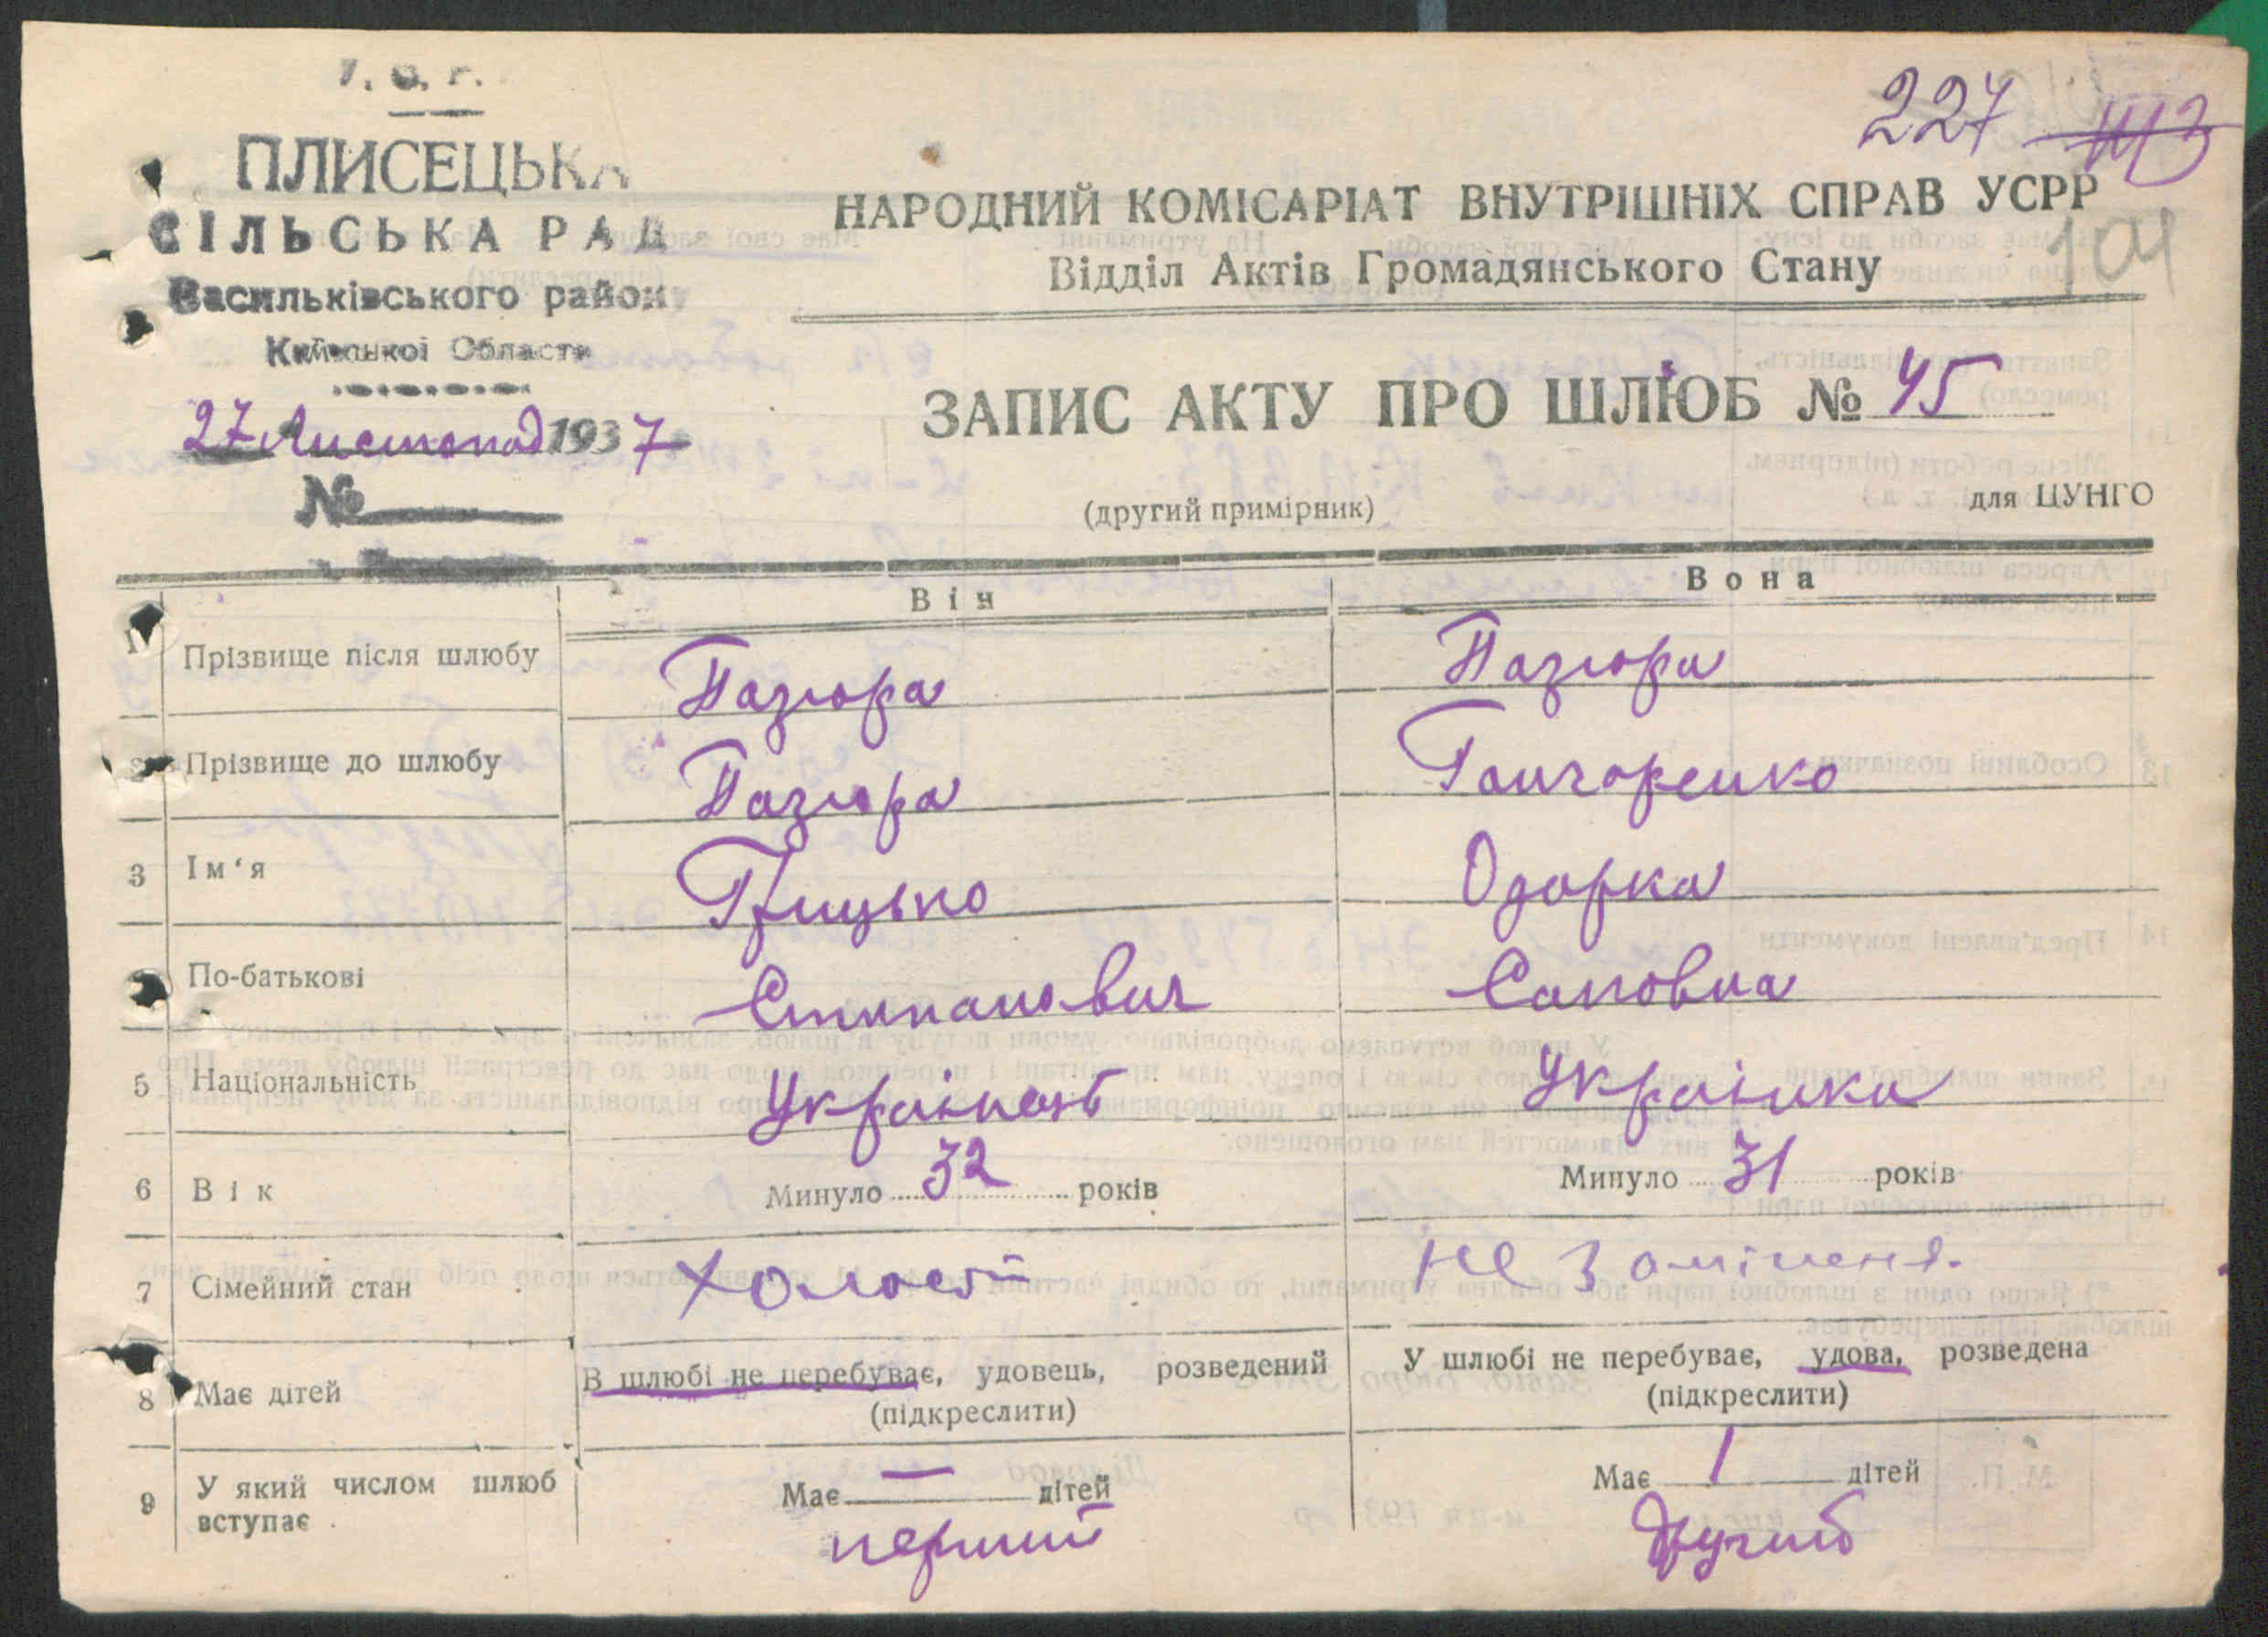 У. С. Р.
ПЛИСЕЦЬКА
СІЛЬСЬКА РАДА
Васильківського району
Київської Области
27 Листопад 1937
№
227 113
104
НАРОДНИЙ КОМІСАРІАТ ВНУТРІШНІХ СПРАВ УСРР
Відділ Актів Громадянського Стану
ЗАПИС АКТУ ПРО ШЛЮБ № 45
(другий примірник)
для ЦУНГО
Він Вона
1 Прізвище після шлюбу Пазюра Пазюра
2 Прізвище до шлюбу Пазюра Гончаренко
3 Ім‘я Грицько Одарка
По-батькові Степанович Саковна
5 Національність Українець Українка
6 Вік Минуло 32 років Минуло 31 років
7 Сімейний стан Холост не заміжня.
В шлюбі не перебуває, удовець, розведений У шлюбі не перебуває, удова, розведена
8 Має дітей (підкреслити) (підкреслити)
Має — дітей Має 1 дітей
9 У який числом шлюб
вступає перший другий